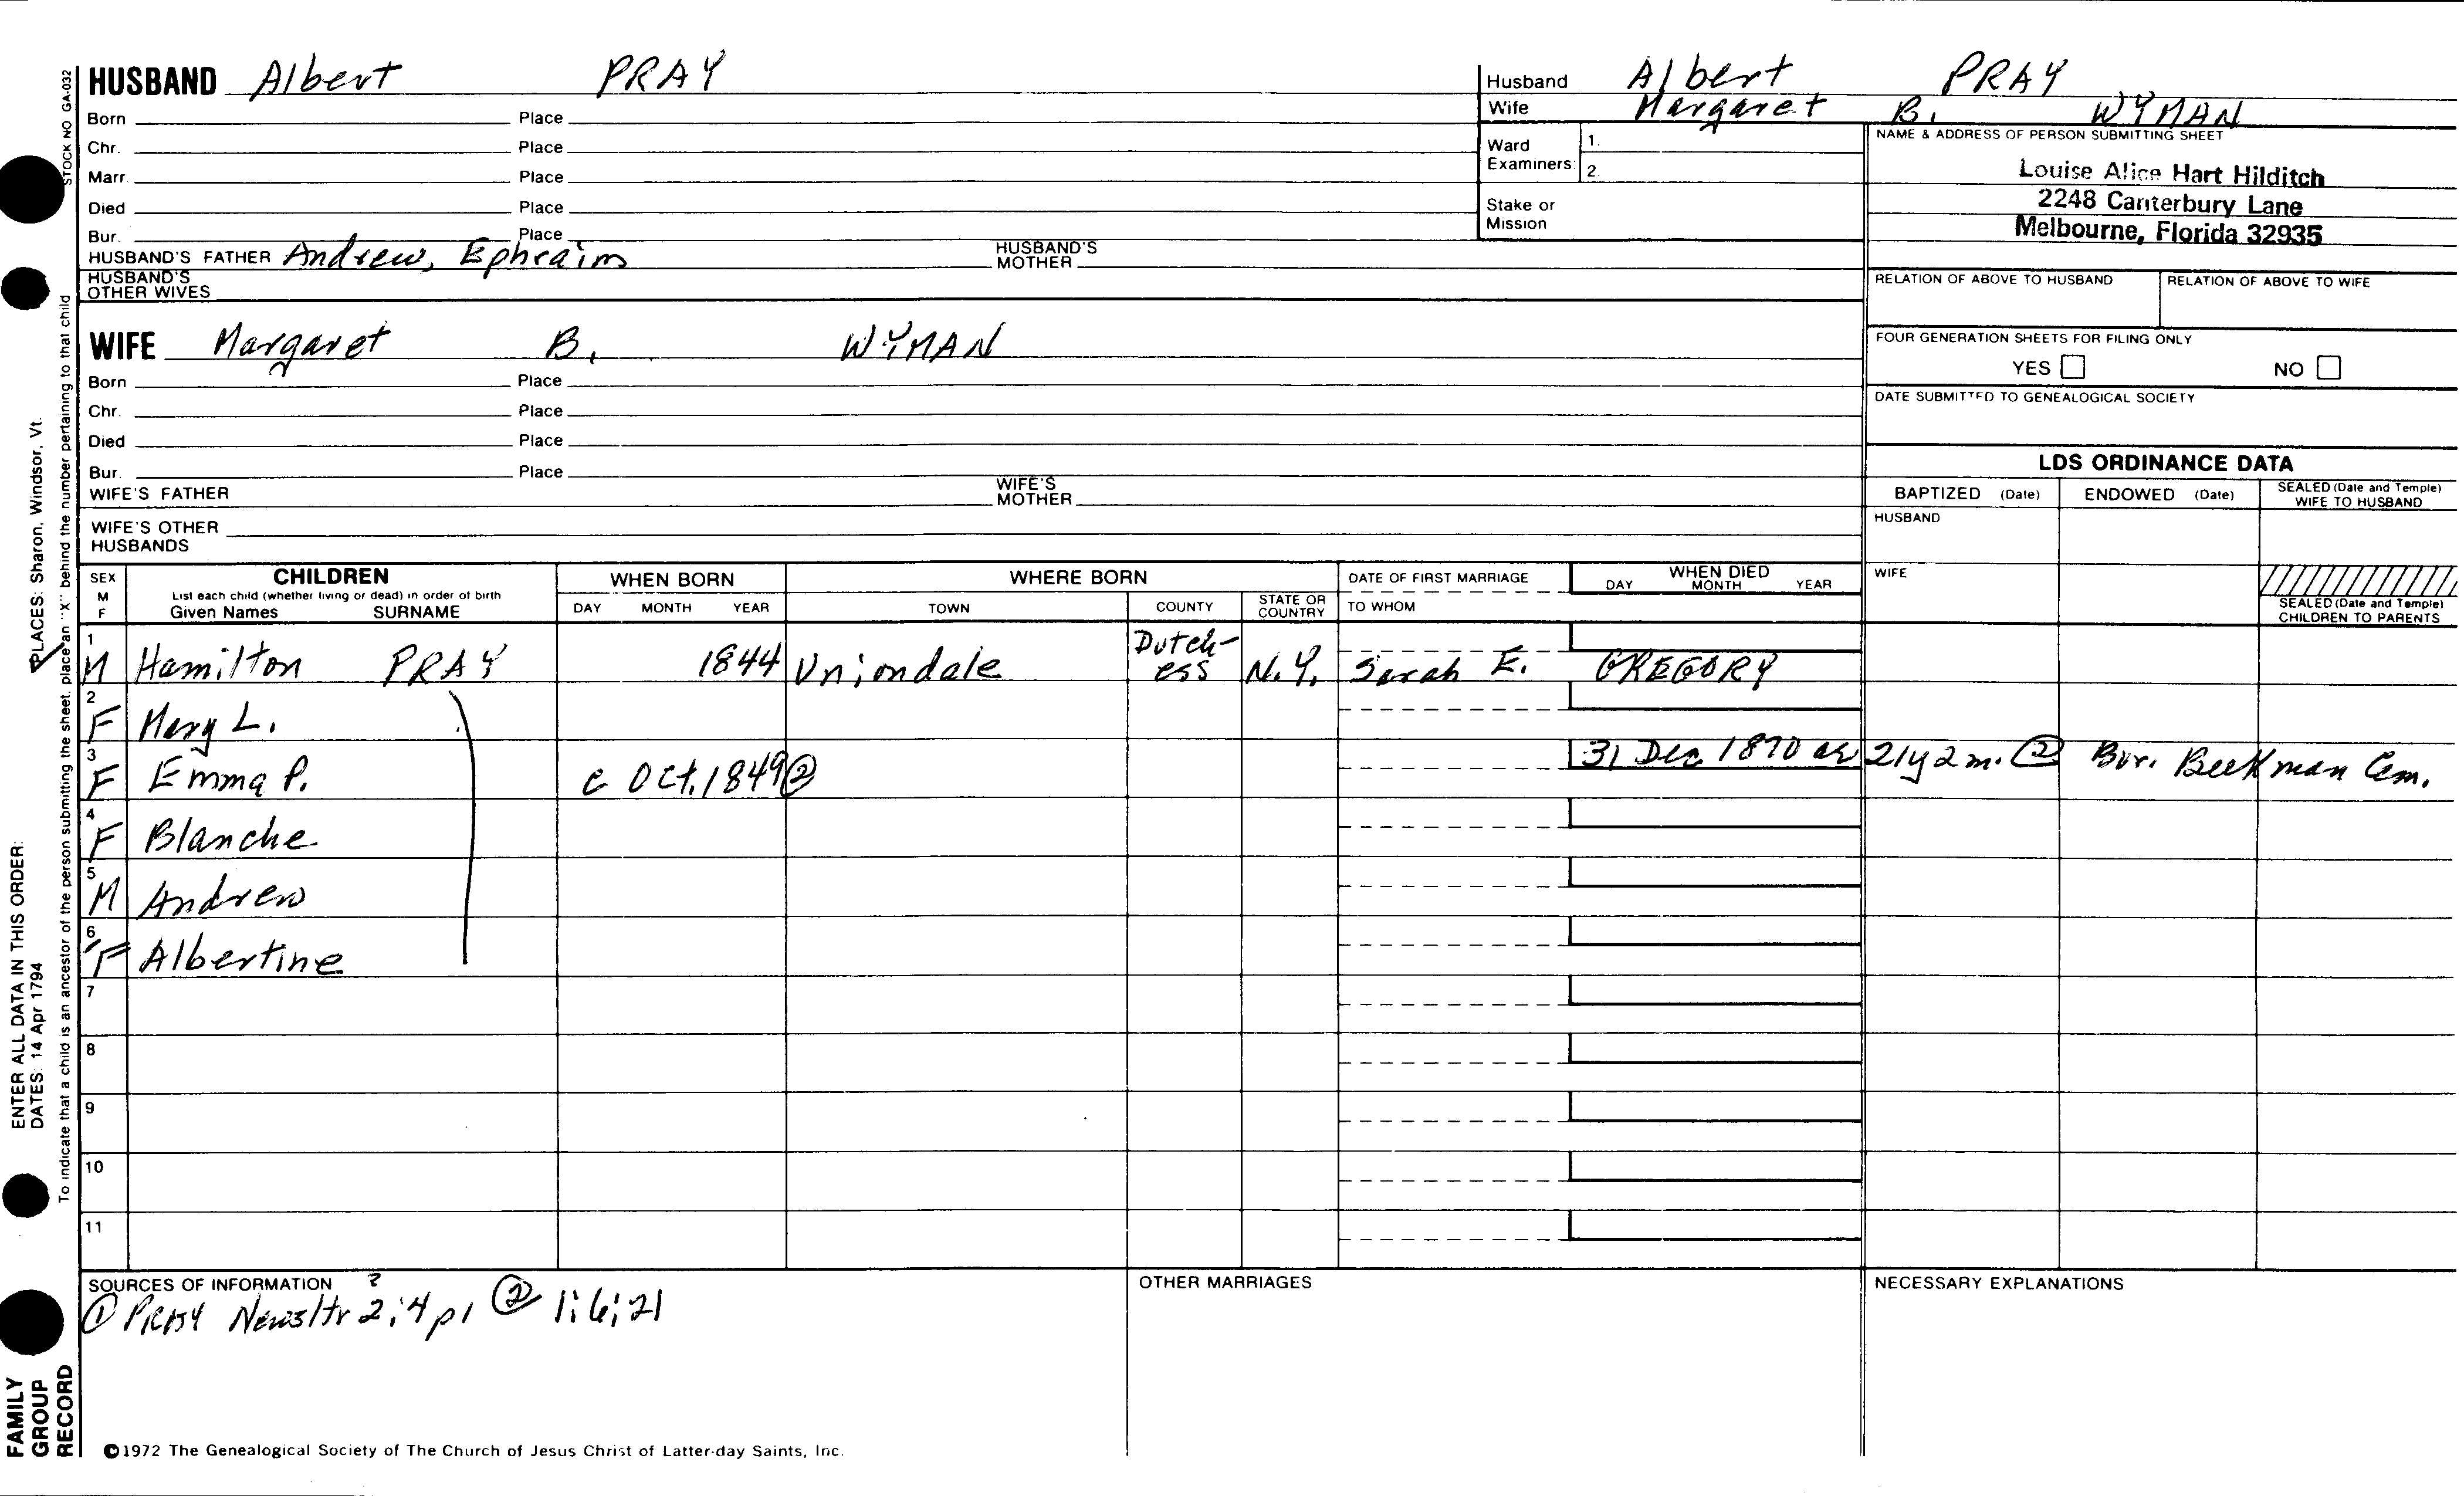 HUSBAND Albert PRAY
Born Place
Chr. Place
Marr. Place
Died Place
Bur. Place
HUSBAND'S FATHER Andrew, Ephraim HUSBAND'S MOTHER
HUSBAND'S OTHER WIVES
WIFE Margaret B. WYMAN
Born Place
Chr. Place
Died Place
Bur. Place
WIFE'S FATHER WIFE'S MOTHER
WIFE'S OTHER HUSBANDS
Husband Albert PRAY
Wife Margaret B. WYMAN
Ward Examiners: 1. 2.
Stake or Mission
NAME & ADDRESS OF PERSON SUBMITTING SHEET
Louise Alice Hart Hilditch
2248 Canterbury Lane
Melbourne, Florida 32935
RELATION OF ABOVE TO HUSBAND RELATION OF ABOVE TO WIFE
FOUR GENERATION SHEETS FOR FILING ONLY
YES NO
DATE SUBMITTED TO GENEALOGICAL SOCIETY
LDS ORDINANCE DATA
BAPTIZED (Date) ENDOWED (Date) SEALED (Date and Temple) WIFE TO HUSBAND
HUSBAND
WIFE
SEALED (Date and Temple) CHILDREN TO PARENTS
SEX M F
CHILDREN
List each child (whether living or dead) in order of birth
Given Names SURNAME
WHEN BORN
DAY MONTH YEAR
WHERE BORN
TOWN COUNTY STATE OR COUNTRY
DATE OF FIRST MARRIAGE
TO WHOM
WHEN DIED
DAY MONTH YEAR
1 M Hamilton PRAY 1844 Uniondale Dutch-ess N.Y. Sarah E. GREGORY
2 F Mary L.
3 F Emma P. c Oct. 1849 ② 31 Dec 1870 ae 21y 2m. ② Bur. Beekman Cem.
4 F Blanche
5 M Andrew
6 F Albertine
7
8
9
10
11
SOURCES OF INFORMATION ?
① PRAY Newsltr 2:4 p1 ② 1:6:21
OTHER MARRIAGES
NECESSARY EXPLANATIONS
©1972 The Genealogical Society of The Church of Jesus Christ of Latter-day Saints, Inc.
STOCK NO GA-032
To indicate that a child is an ancestor of the person submitting the sheet, place an "X" behind the number pertaining to that child
ENTER ALL DATA IN THIS ORDER:
DATES: 14 Apr 1794
PLACES: Sharon, Windsor, Vt.
FAMILY GROUP RECORD